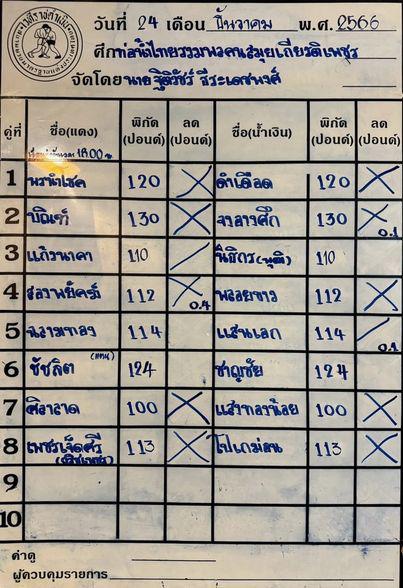 วันที่ 24 เดือน ธันวาคม พ.ศ. 2566
ศึกท่อน้ำไทยธรรมพคคนสมุยเกียรติเพชร
จัดโดย นาย ฐิติวัชร์ ธีระเดชพงศ์
คู่ที่ ชื่อ(แดง) พิกัด (ปอนด์) ลด (ปอนด์) ชื่อ(น้ำเงิน) พิกัด (ปอนด์) ลด (ปอนด์)
18:00 น
1 พรนำโชค 120 ดำเดือด 120
2 บัณฑ์ 130 จางวางศึก 130 0.1
3 แก้วนาคา 110 นิธิกร 110
4 112 0.4 พลอยขาว 112
5 ฉลามทอง 114 แสนเอก 114 0.1
6 ชัชลิต (แทน) 124 ชาญชัย 124
7 ศิลาลาด 100 แสงทองน้อย 100
8 เพชรเจ็ดศรี 113 113
9
10
ค่าดู
ผู้ควบคุมรายการ